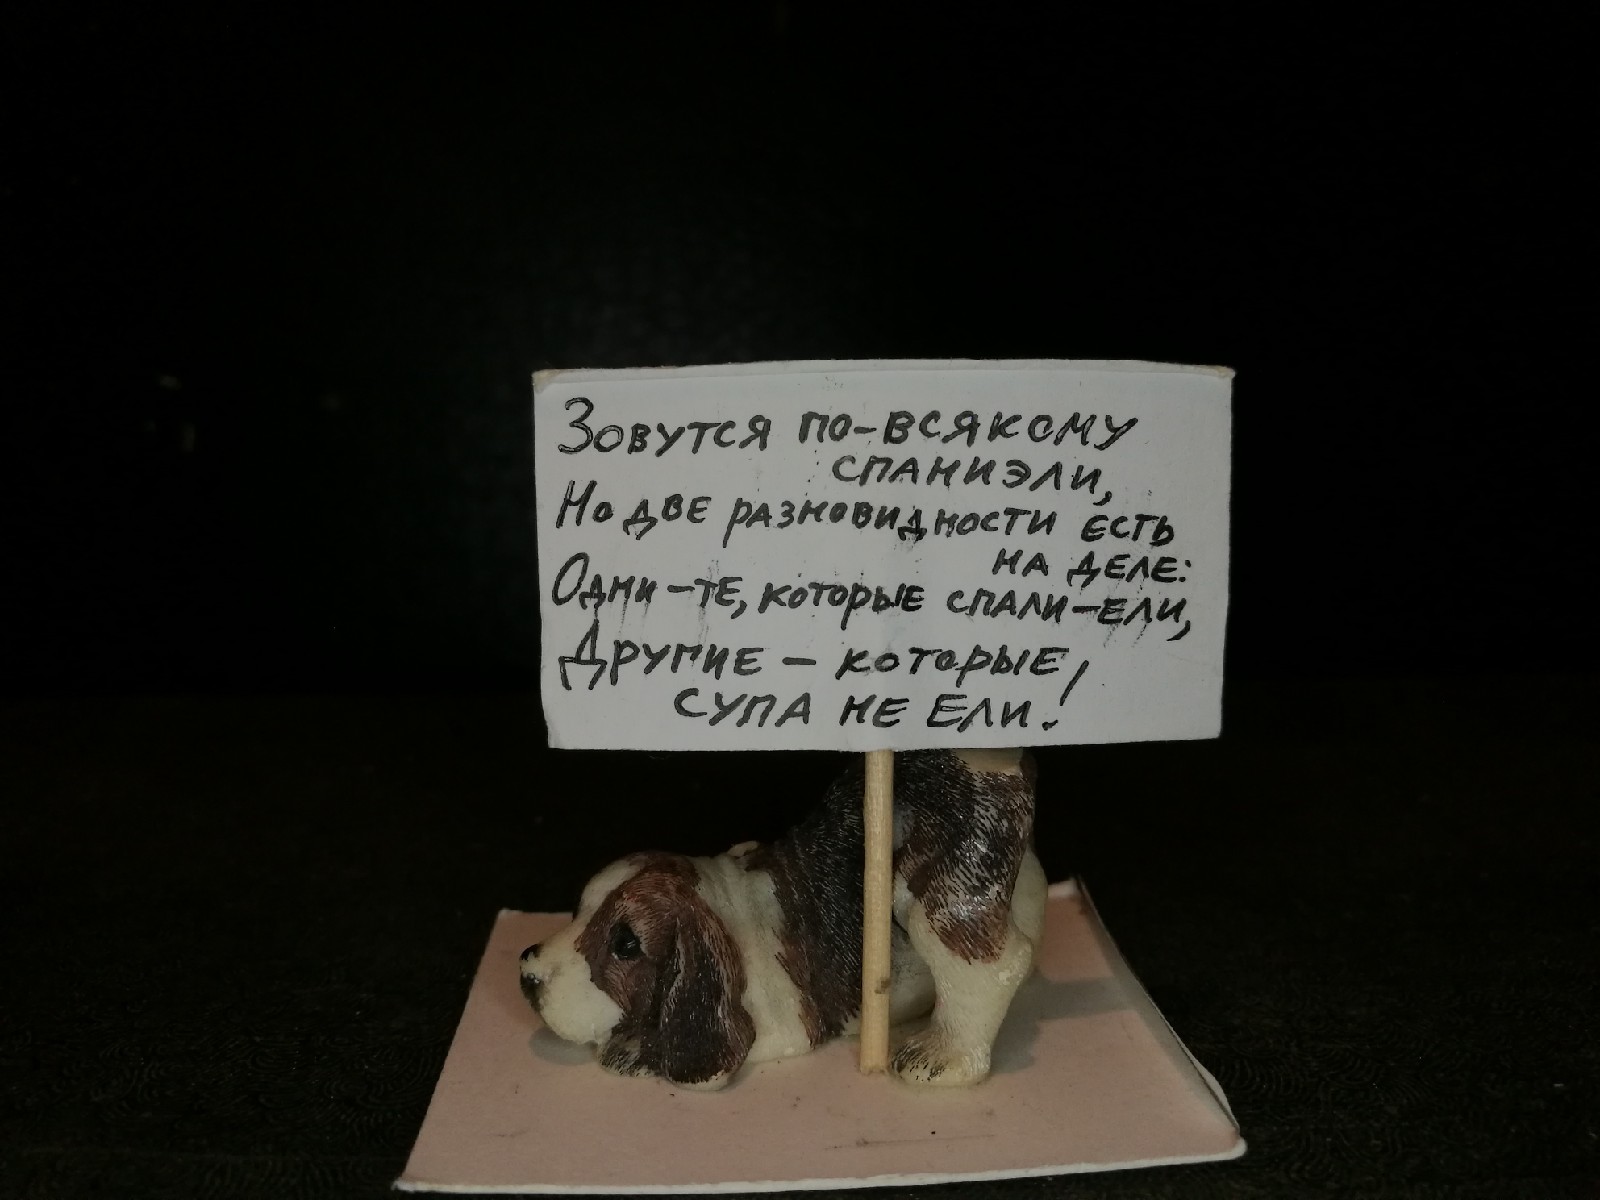 Зовутся по-всякому
спаниэли,
Но две разновидности есть
на деле:
Одни-те, которые спали-ели,
Другие - которые,
супа не ели!